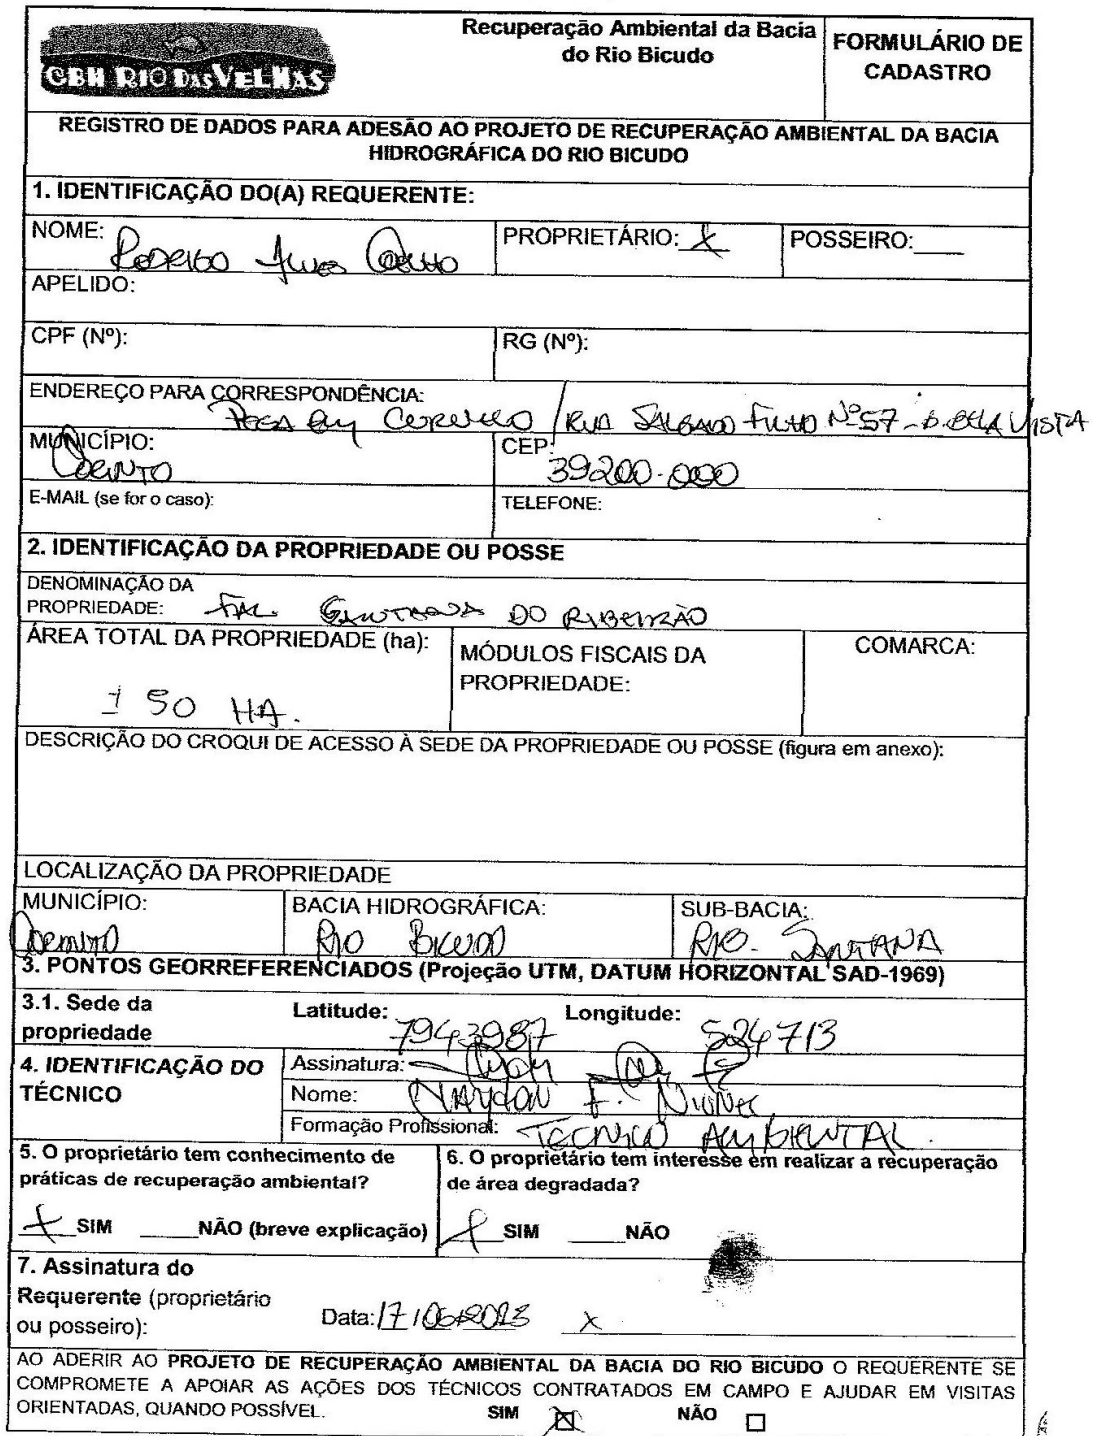 CBH RIO DAS VELHAS
Recuperação Ambiental da Bacia
do Rio Bicudo
FORMULÁRIO DE
CADASTRO
REGISTRO DE DADOS PARA ADESÃO AO PROJETO DE RECUPERAÇÃO AMBIENTAL DA BACIA
HIDROGRÁFICA DO RIO BICUDO
1. IDENTIFICAÇÃO DO(A) REQUERENTE:
NOME: RODRIGO ALVES COELHO
PROPRIETÁRIO: X
POSSEIRO: ___
APELIDO:
CPF (Nº):
RG (Nº):
ENDEREÇO PARA CORRESPONDÊNCIA:
/ RUA SALGADO FILHO Nº 57 - B. BELA VISTA
MUNICÍPIO:
CORINTO
CEP:
39200-000
E-MAIL (se for o caso):
TELEFONE:
2. IDENTIFICAÇÃO DA PROPRIEDADE OU POSSE
DENOMINAÇÃO DA
PROPRIEDADE: FAZ. DO RIBEIRÃO
ÁREA TOTAL DA PROPRIEDADE (ha):
± 50 HA.
MÓDULOS FISCAIS DA
PROPRIEDADE:
COMARCA:
DESCRIÇÃO DO CROQUI DE ACESSO À SEDE DA PROPRIEDADE OU POSSE (figura em anexo):
LOCALIZAÇÃO DA PROPRIEDADE
MUNICÍPIO:
CORINTO
BACIA HIDROGRÁFICA:
RIO BICUDO
SUB-BACIA:
RIB. SANTANA
3. PONTOS GEORREFERENCIADOS (Projeção UTM, DATUM HORIZONTAL SAD-1969)
3.1. Sede da
propriedade
Latitude: 7943987
Longitude: 524713
4. IDENTIFICAÇÃO DO
TÉCNICO
Assinatura:
Nome: F.
Formação Profissional: TECNICO AMBIENTAL.
5. O proprietário tem conhecimento de
práticas de recuperação ambiental?
X SIM ____NÃO (breve explicação)
6. O proprietário tem interesse em realizar a recuperação
de área degradada?
X SIM ____NÃO
7. Assinatura do
Requerente (proprietário
ou posseiro):
Data: 17/06/2013
X
AO ADERIR AO PROJETO DE RECUPERAÇÃO AMBIENTAL DA BACIA DO RIO BICUDO O REQUERENTE SE
COMPROMETE A APOIAR AS AÇÕES DOS TÉCNICOS CONTRATADOS EM CAMPO E AJUDAR EM VISITAS
ORIENTADAS, QUANDO POSSÍVEL. SIM ☒ NÃO ☐